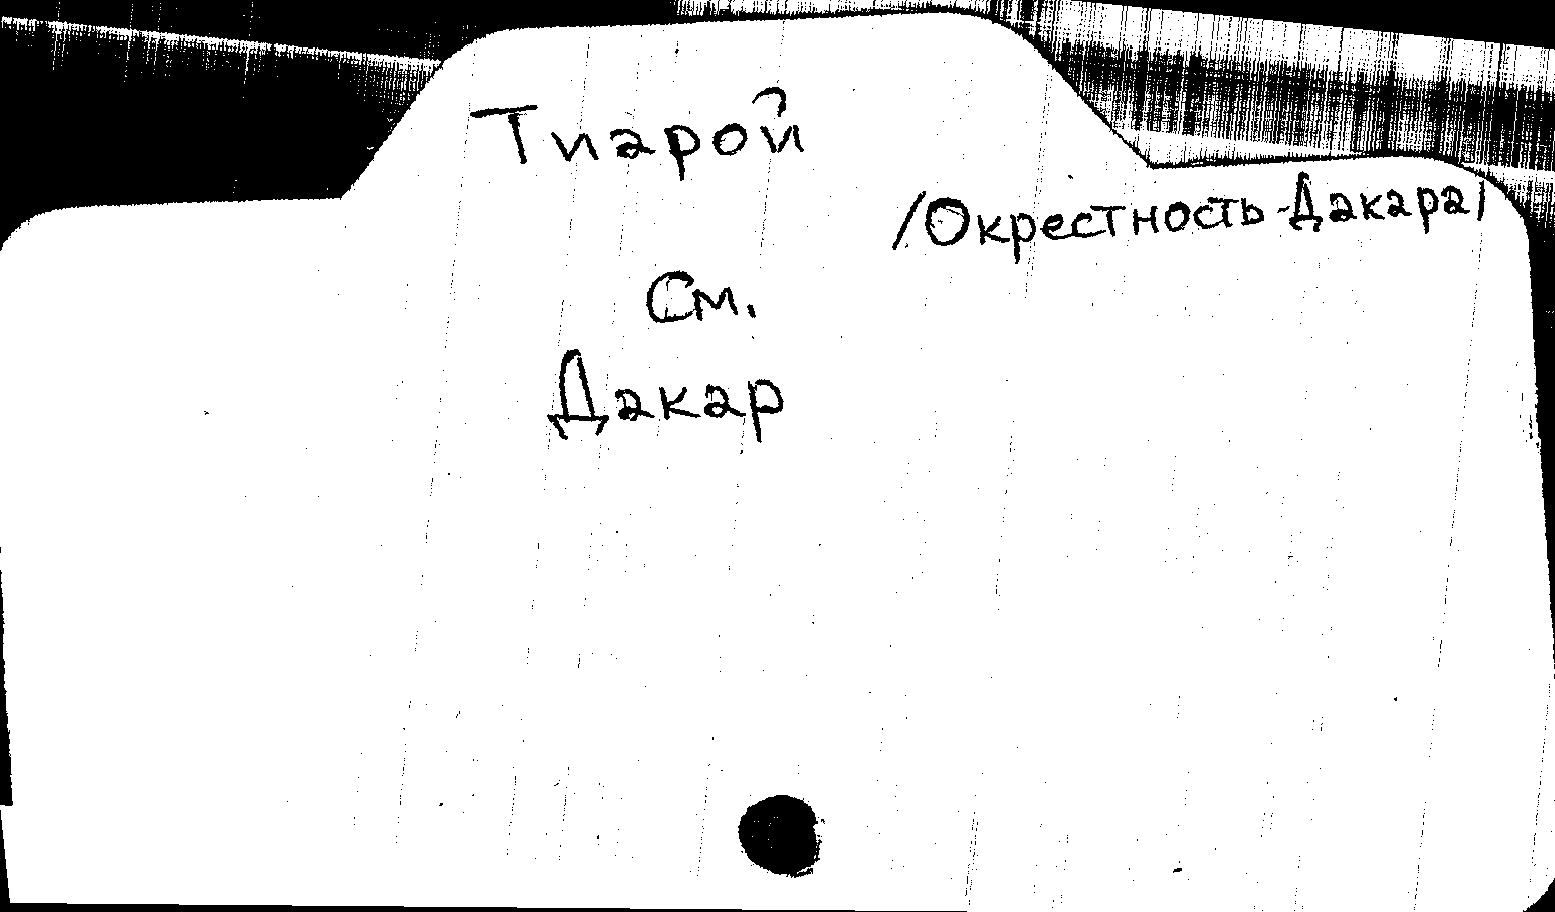 Тиарой
/Окрестность Дакара/
См.
Дакар